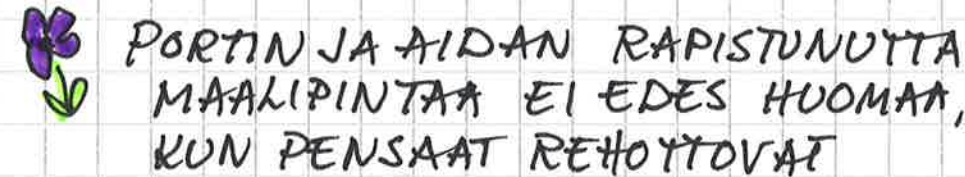 PORTIN JA AIDAN RAPISTUNUTTA
MAALIPINTAA EI EDES HUOMAA,
KUN PENSAAT REHOTTOVAT